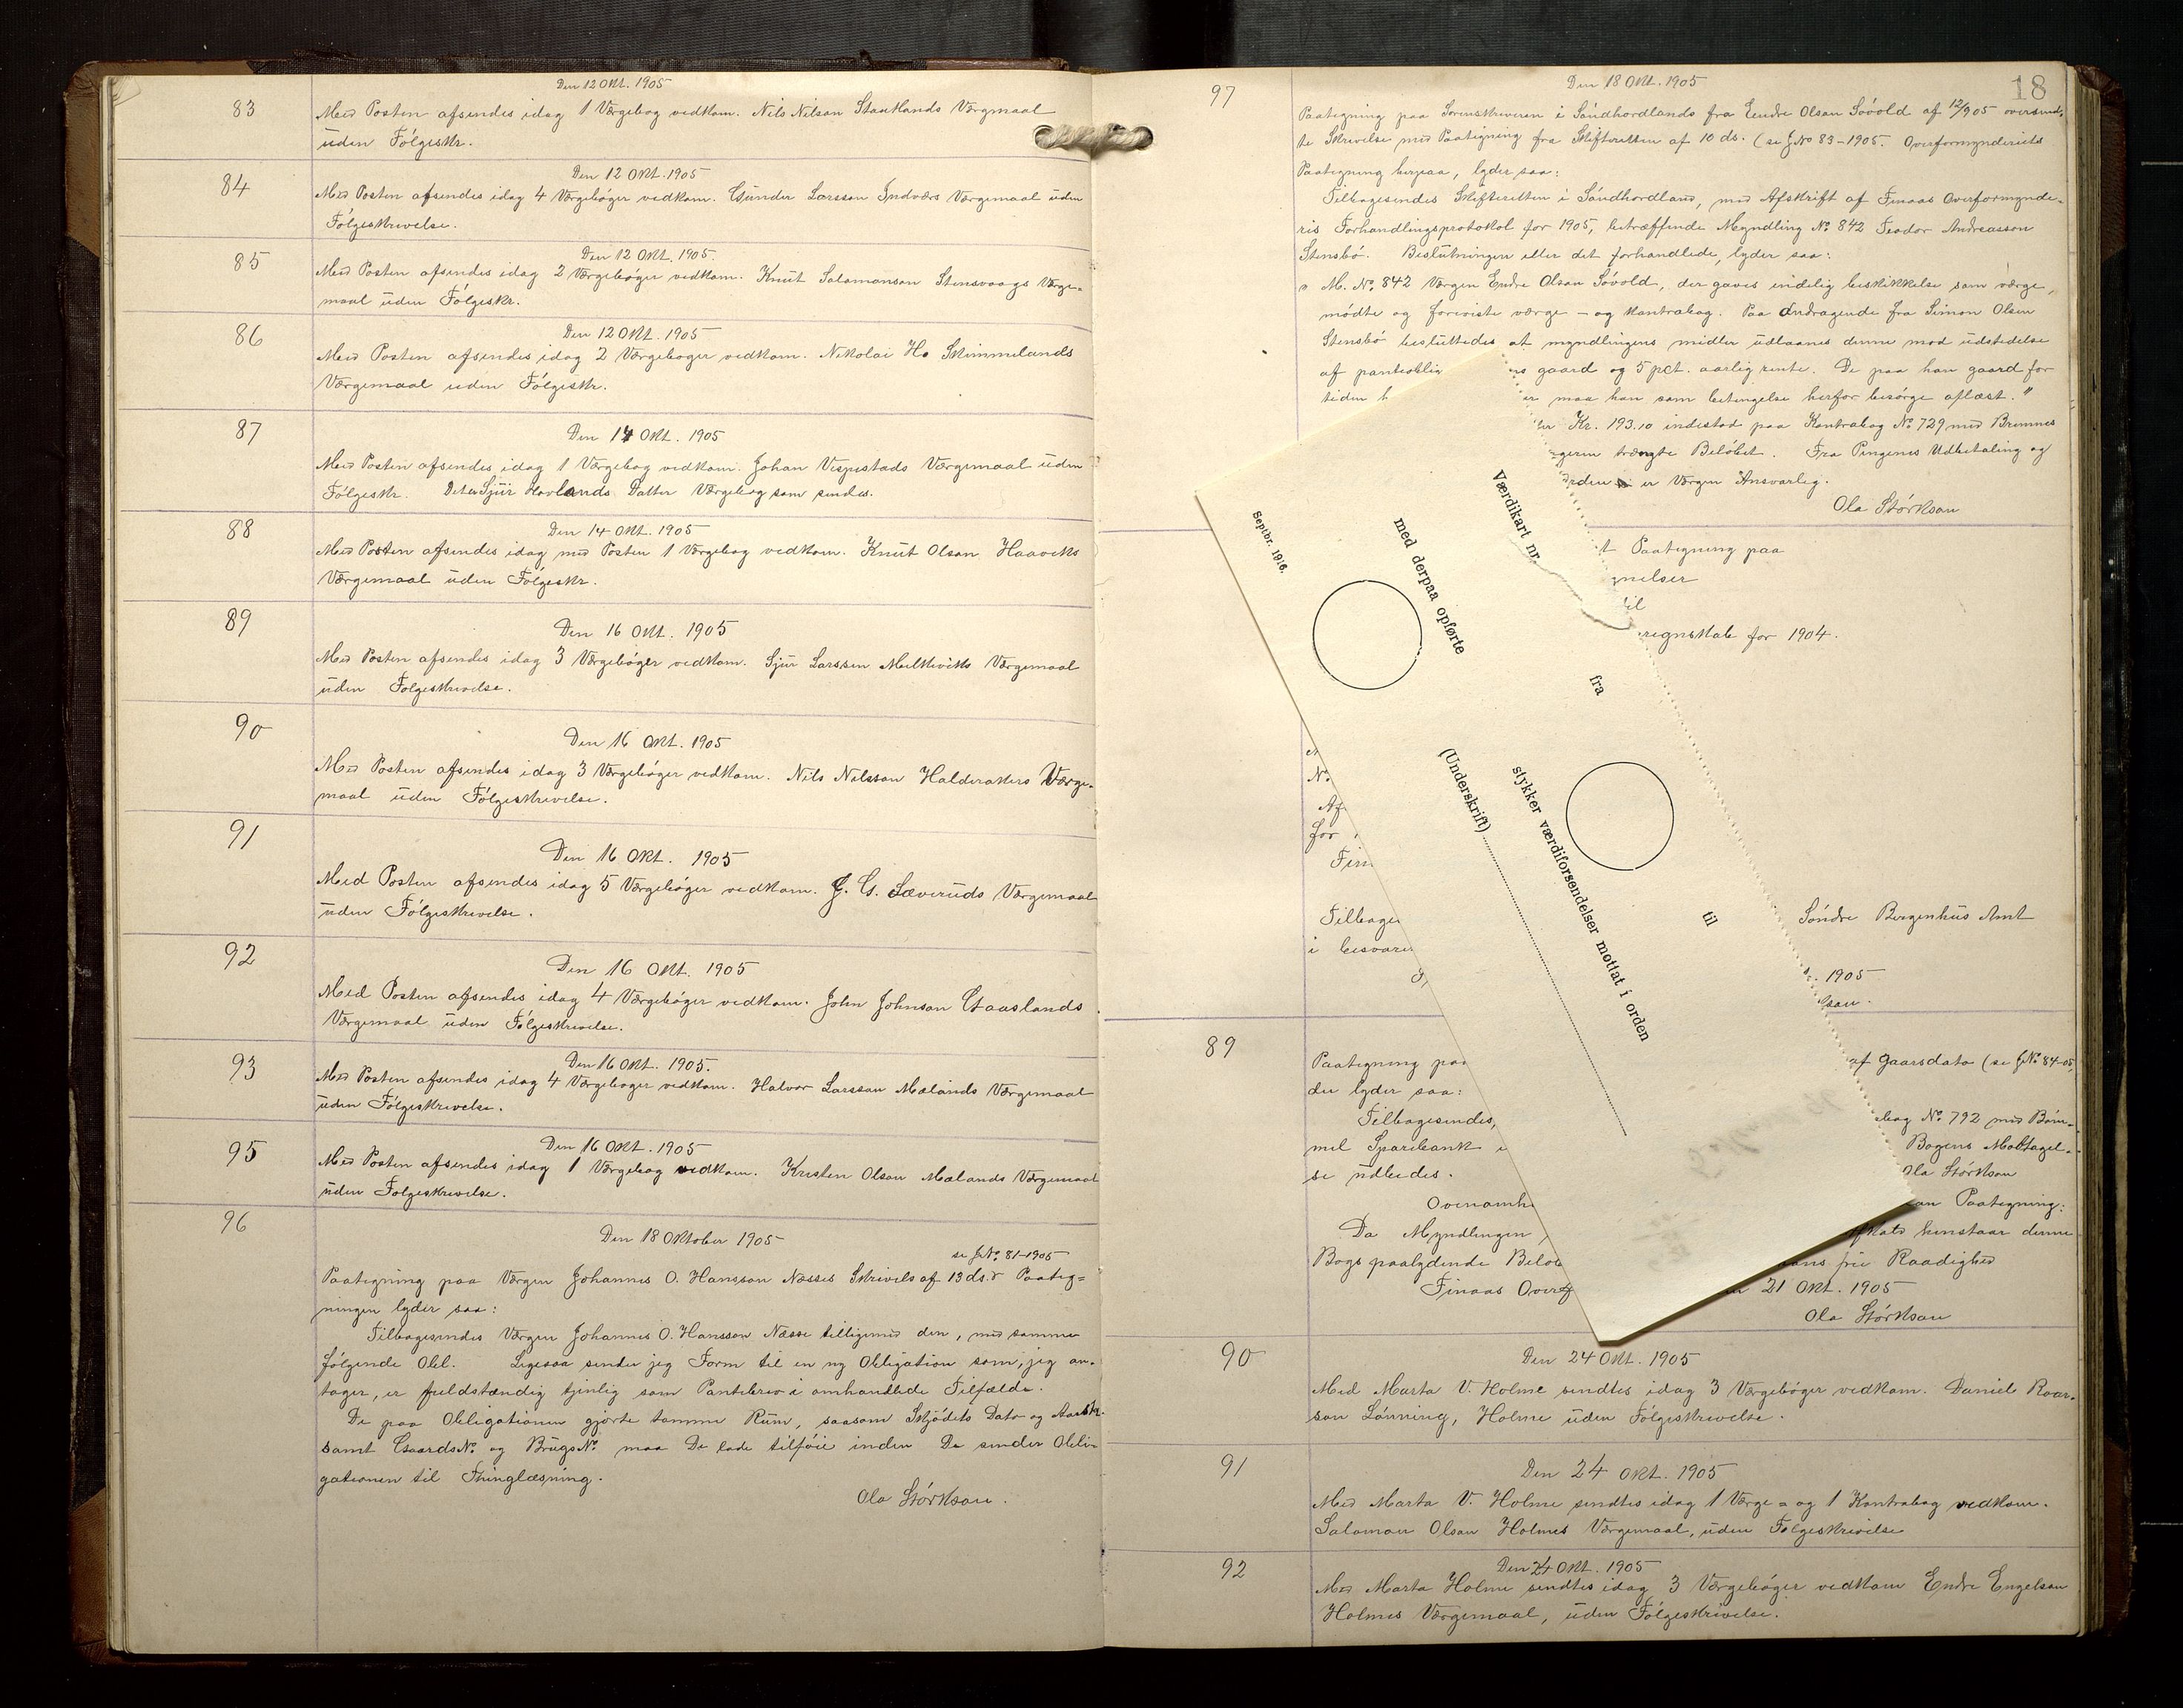 83
Den 12 Okt. 1905
Med Posten afsendes idag 1 Værgebog vedkom. Nils Nilsen Stautlands Værgmaal
uden Følgeskr.
84
Den 12 Okt. 1905
Med Posten afsendes idag 4 Værgebøger vedkom. Gunder Larsson Indværs Værgemaal uden
Følgeskrivelse.
85
Den 12 Okt. 1905.
Med Posten afsendes idag 2 Værgebøger vedkom. Knut Salamonson Stensvaags Værge-
maal uden Følgeskr.
86
Den 12 Okt. 1905
Med Posten afsendes idag 2 Værgebøger vedkom. Nikolai Hs Skimmelands
Værgemaal uden Følgeskr.
87
Den 14 Okt. 1905
Med Posten afsendes idag 1 Værgebog vedkom. Johan Vespestads Værgemaal uden
Følgeskr. Det er Sjur Hovlands Datter Værgebog som sendes.
88
Den 14 Okt. 1905
Med Posten afsendes idag med Posten 1 Værgebog vedkom. Knut Olson Haaviks
Værgemaal uden Følgeskr.
89
Den 16 Okt. 1905
Med Posten afsendes idag 3 Værgebøger vedkom. Sjur Larssen Melkeviks Værgemaal
uden Følgeskrivelse.
90
Den 16 Okt. 1905
Med Posten afsendes idag 3 Værgebøger vedkom. Nils Nelsson Halderakers Værge-
maal uden Følgeskrivelse.
91
Den 16 Okt. 1905
Med Posten afsendes idag 5 Værgebøger vedkom. J. G. Sæveruds Værgemaal
uden Følgeskrivelse.
92
Den 16 Okt. 1905
Med Posten afsendes idag 4 Værgebøger vedkom. John Johnson Gaaslands
Værgemaal uden Følgeskrivelse.
93
Den 16 Okt. 1905.
Med Posten afsendes idag 4 Værgebøger vedkom. Halvor Larsson Mælands Værgemaal
uden Følgeskrivelse.
95
Den 16 Okt. 1905
Med Posten afsendes idag 1 Værgebog vedkom. Kristen Olson Mælands Værgemaal
uden Følgeskrivelse.
96
Den 18 Oktober 1905
se J№ 81-1905
Paategning paa Værgen Johannes O. Hansson Næsses Skrivels af 13 ds. Paateg=
ningen lyder saa:
Tilbagesendes Værgen Johannes O. Hansson Næsse tilligemed den, med samme
følgende Obl. Ligesaa sender jeg Form til en ny Obligation som, jeg an-
tager, er fuldstændig tjenlig som Pantebrev i omhandlede Tilfælde.
De paa Obligationen gjorte tomme Rum, saasom Skjødets Dato og
samt Gaards№ og Brugs№ maa De lade tilføie inden De sender Obli-
gationen til Thinglæsning.
Ola Størkson.
18
97
Den 18 Okt. 1905
Paategning paa Sorenskriveren i Søndhordlands fra Endre Olson Søvold af 12/9 05 oversend-
te Skrivelse med Paategning fra Skifteretten af 10 ds. (se J№ 83-1905. Overformynderiets
Paategning herpaa, lyder saa:
Tilbagesendes Skifteretten i Søndhordland, med Afskrift af Finaas Overformynde-
ris Forhandlingsprotokol for 1905, betræffende Myndling № 842 Teodor Andreasson
Stensbø. Beslutningen eller det forhandlede, lyder saa:
" M. № 842 Værgen Endre Olson Søvold, der gaves endelig beskikkelse som værge,
mødte og foreviste værge - og kontrabog. Paa andragende fra Simon Olsen
Stensbø besluttedes at myndlingens midler udlaanes denne mod udstedelse
af panteoblig ns gaard og 5 pct. aarlig rente. De paa han gaard for
tiden h er maa han som betingelse herfor besørge aflæst."
er Kr. 193.10 indestod paa Kontrabog № 729 med Bremnes
geren trængte Beløbet. Fra Pengenes Udbetaling og
rden er Værgen Ansvarlig.
Ola Størkson
t Paategning paa
nelser
til
regnskab for 1904.
Septbr. 1916.
Værdikart nr.
med derpaa opførte
fra
stykker værdiforsendelser mottat i orden
(Underskrift)
til
№
Af
for
Fin
Tilbage Søndre Bergenhus Amt
i besvare
1905
lson.
89
Paategning paa af Gaarsdato (se J№ 84-05)
der lyder saa:
Tilbagesendes, bog № 792 med Bøm-
mel Sparebank Bogens Modtagel-
se udbedes. Ola Størkson
Ovennævn an Paategning:
Da Myndlingen henstaar denne
Bogs paalydende Belø ans frie Raadighed
Finaas Overf 21 Okt. 1905
Ola Størkson
90
Den 24 Okt. 1905
Med Marta V. Holme sendtes idag 3 Værgebøger vedkom. Daniel Roar-
son Lønning, Holme uden Følgeskrivelse.
91
Den 24 Okt. 1905
Med Marta V. Holme sendtes idag 1 Værge = og 1 Kontrabog vedkom.
Salomon Olson Holmes Værgemaal, uden Følgeskrivelse
92
Den 24 Okt. 1905
Med Marta Holme sendtes idag 3 Værgebøger vedkom Endre Engelson
Holmes Værgemaal, uden Følgeskrivelse.